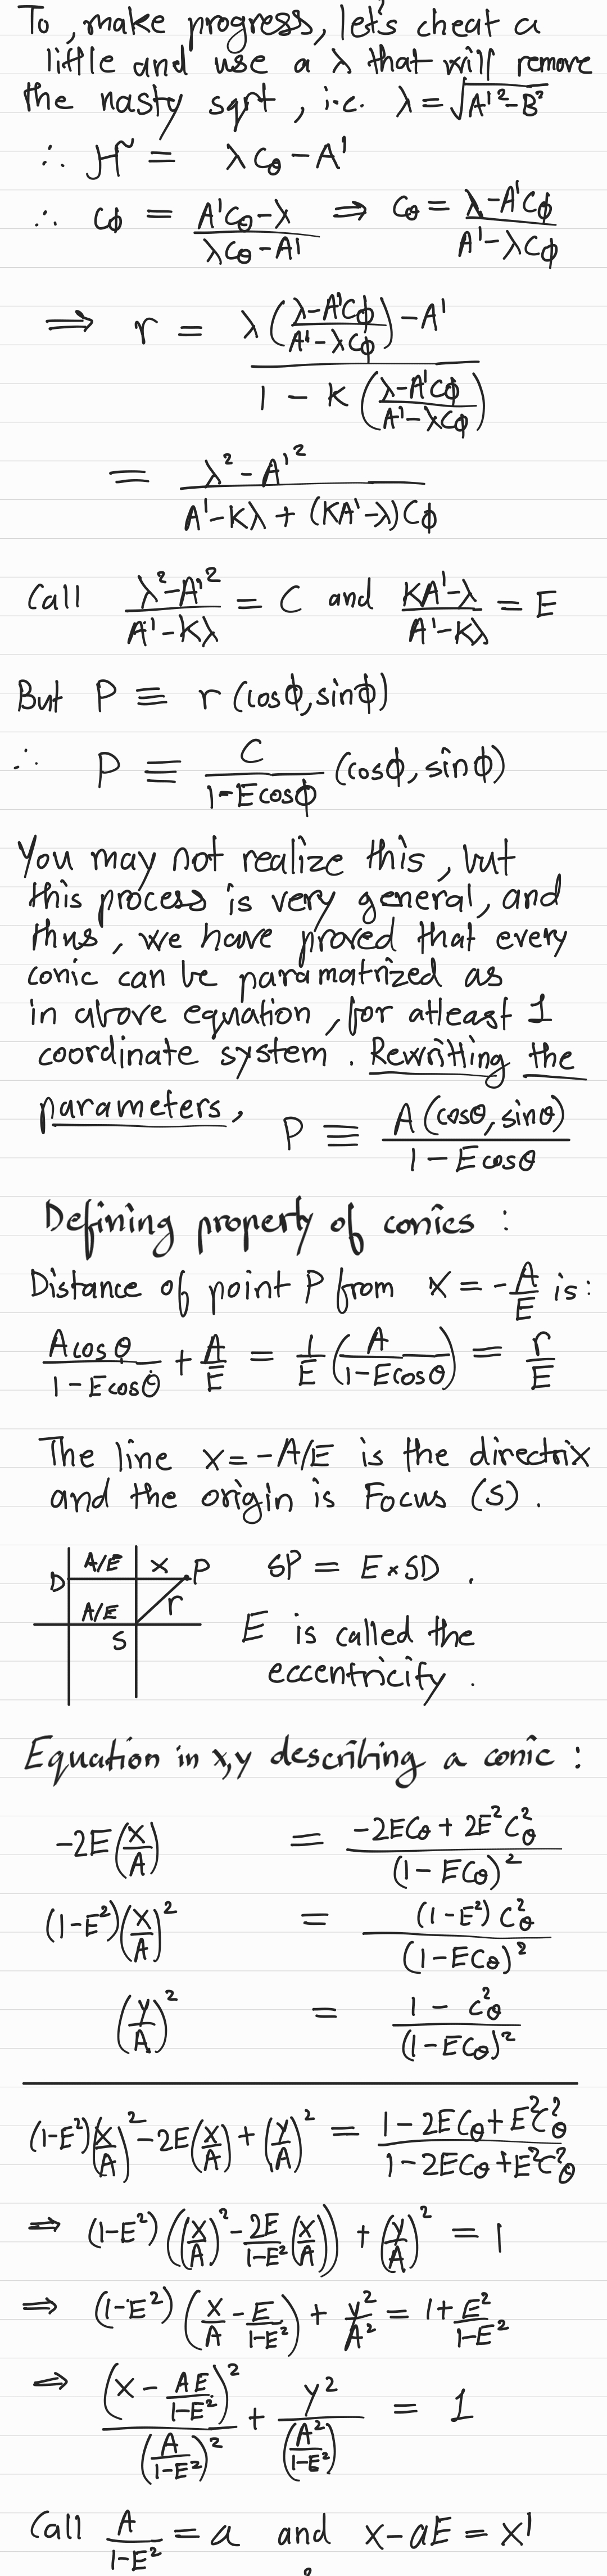 To, make progress, let's cheat a
little and use a λ that will remove
the nasty sqrt, i.e. λ = √(A'² - B²)
∴ H̃ = λC_θ - A'
∴ C_ϕ = (A'C_θ - λ)/(λC_θ - A') ⇒ C_θ = (λ - A'C_ϕ)/(A' - λC_ϕ)
⇒ r = (λ((λ - A'C_ϕ)/(A' - λC_ϕ)) - A')/(1 - K((λ - A'C_ϕ)/(A' - λC_ϕ)))
= (λ² - A'²)/(A' - Kλ + (KA' - λ)C_ϕ)
Call (λ² - A'²)/(A' - Kλ) = C and (KA' - λ)/(A' - Kλ) = E
But P ≡ r(cosϕ, sinϕ)
∴ P ≡ C/(1 - E cosϕ) (cosϕ, sinϕ)
You may not realize this, but
this process is very general, and
thus, we have proved that every
conic can be paramatrized as
in above equation, for atleast 1
coordinate system. Rewritting the
parameters, P ≡ A(cosθ, sinθ)/(1 - E cosθ)
Defining property of conics :
Distance of point P from X = -A/E is :
A cosθ/(1 - E cosθ) + A/E = 1/E (A/(1 - E cosθ)) = r/E
The line X = -A/E is the directrix
and the origin is Focus (S).
D A/E X P SP = E × SD .
A/E r
S E is called the
eccentricity .
Equation in x,y describing a conic :
-2E(X/A) = (-2EC_θ + 2E²C²_θ)/(1 - EC_θ)²
(1-E²)(X/A)² = (1-E²)C²_θ/(1 - EC_θ)²
(y/A)² = (1 - C²_θ)/(1 - EC_θ)²
(1-E²)(X/A)² - 2E(X/A) + (y/A)² = (1 - 2EC_θ + E²C²_θ)/(1 - 2EC_θ + E²C²_θ)
⇒ (1-E²)((X/A)² - 2E/(1-E²) (X/A)) + (y/A)² = 1
⇒ (1-E²)(X/A - E/(1-E²)) + y²/A² = 1 + E²/(1-E²)
⇒ (X - AE/(1-E²))²/(A/(1-E²))² + y²/(A²/(1-E²)) = 1
Call A/(1-E²) = a and X - aE = X'